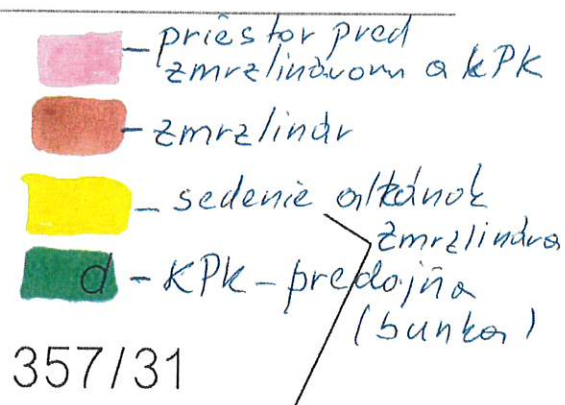 - priestor pred
zmrzlinárom a KPK
- zmrzlinár
- sedenie altánok
zmrzlinára
d - KPK - predajňa
(bunka)
357/31